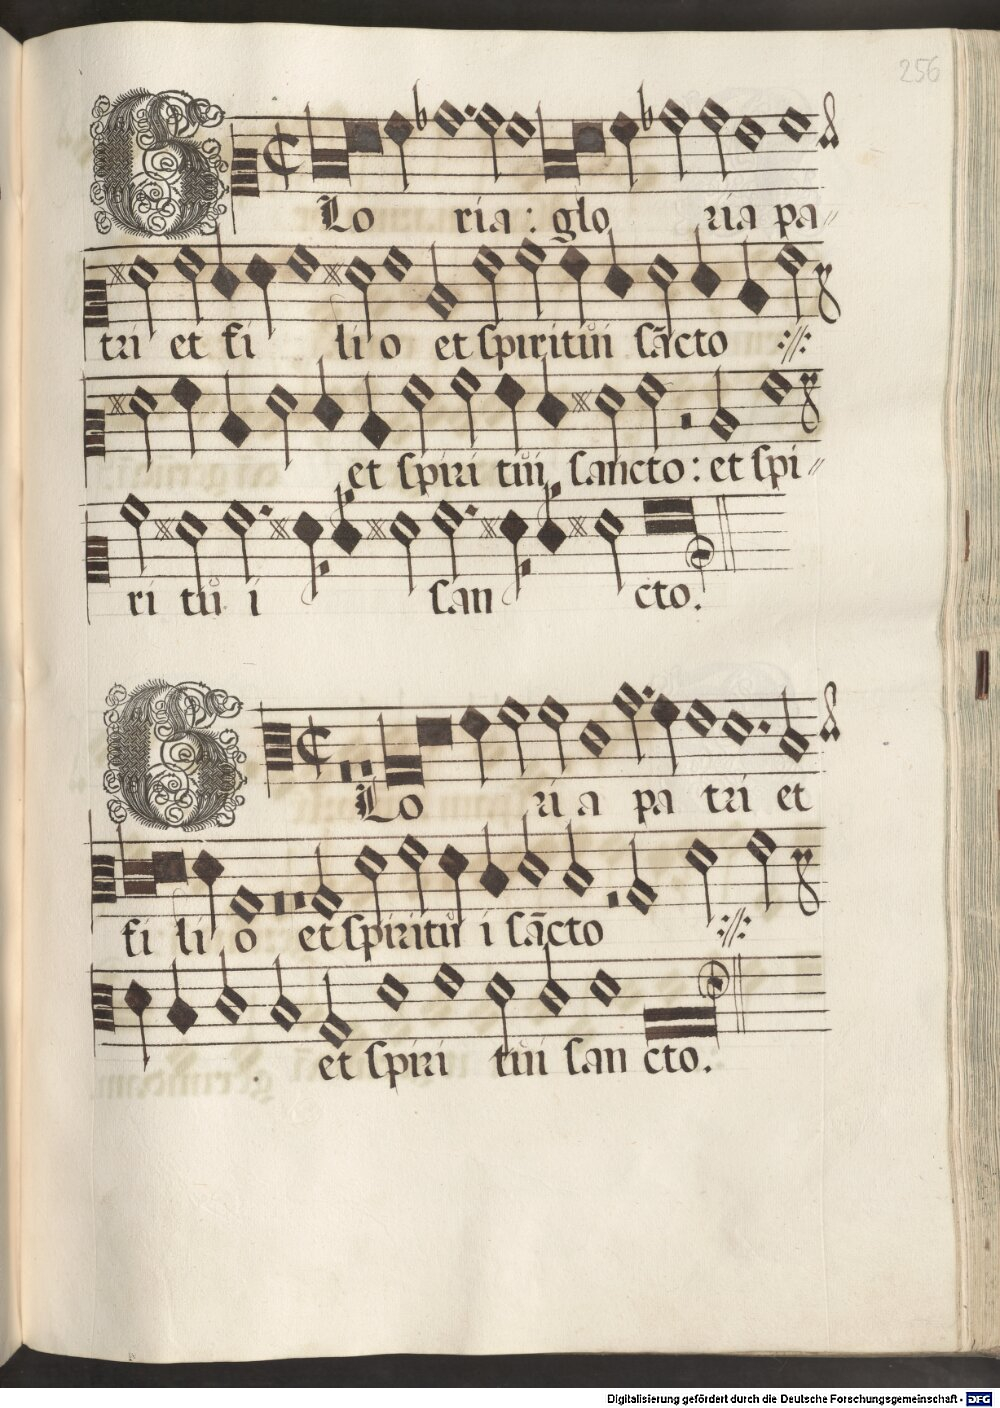 256
GLo ria : glo ria pa〃
tri et fi li o et spiritui sãcto ://:
et spiri tui sancto : et spi〃
ri tu i san cto.
GLo ri a pa tri et
fi li o et spiritu i sãcto ://:
et spiri tui san cto.
Digitalisierung gefördert durch die Deutsche Forschungsgemeinschaft - DFG